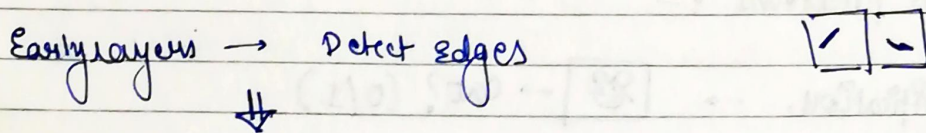 Early layers → Detect edges
⇓